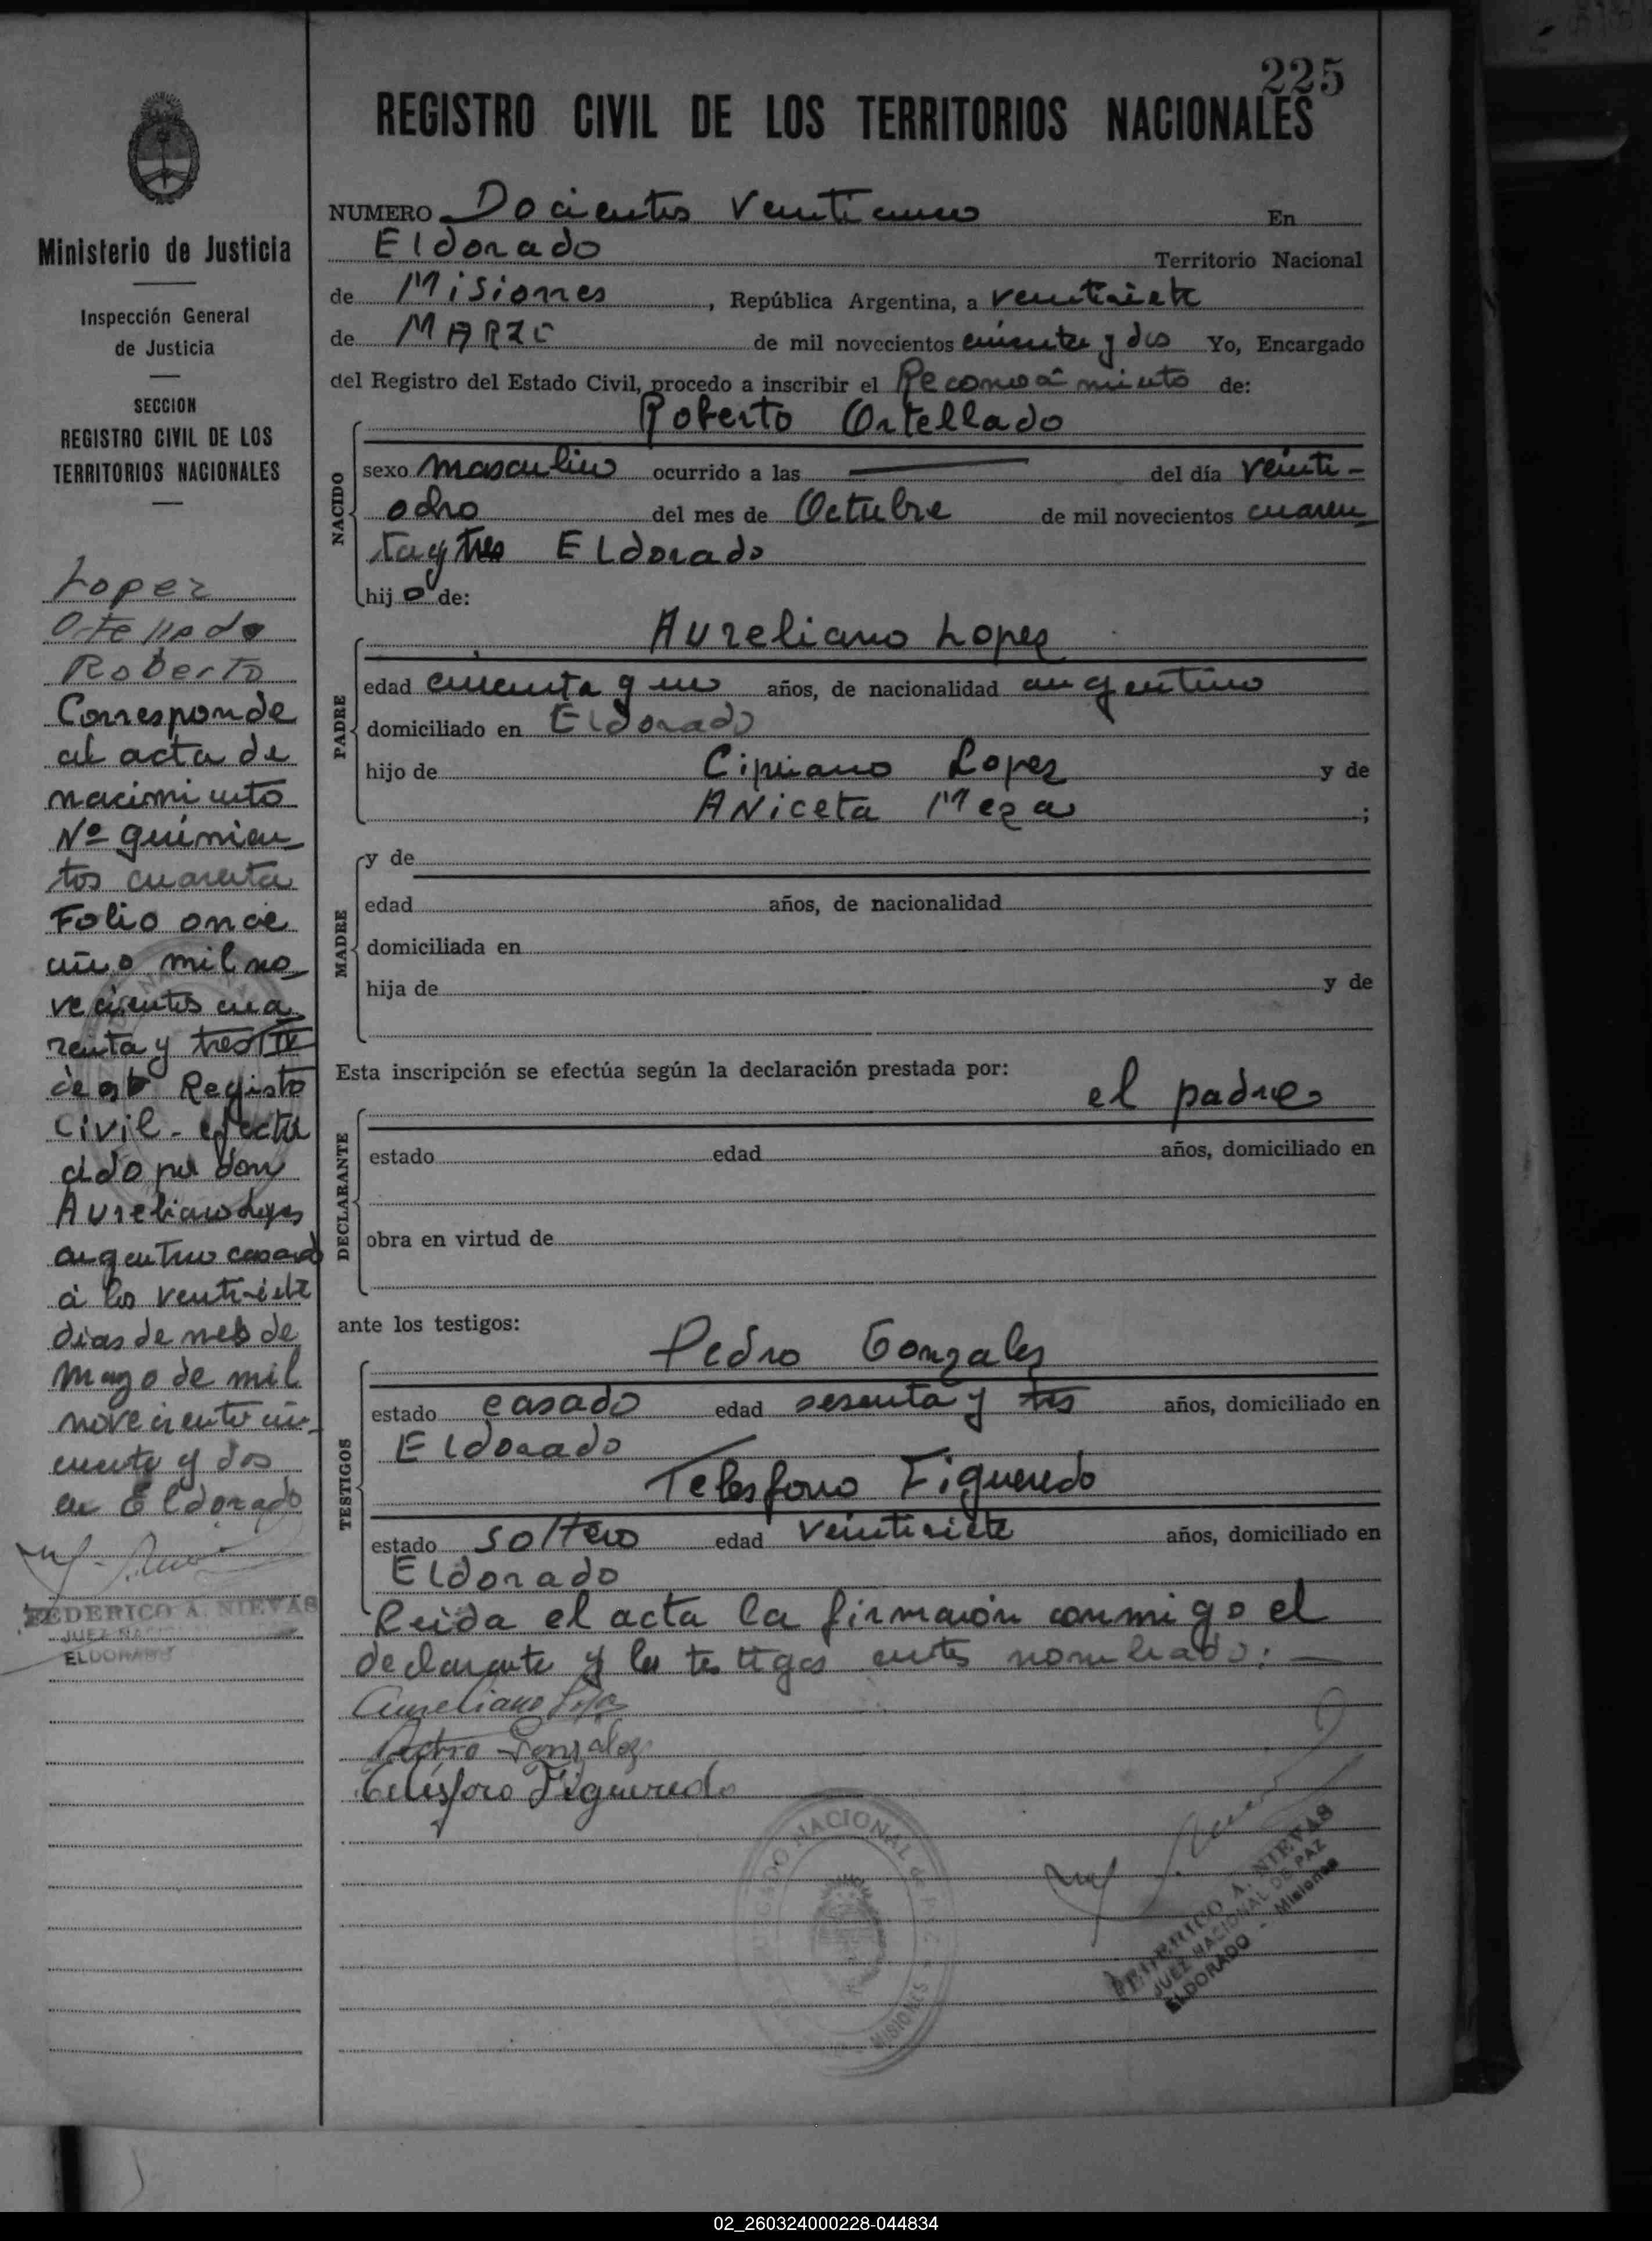 225
REGISTRO CIVIL DE LOS TERRITORIOS NACIONALES
NUMERO Docientos Venticinco En
Eldorado Territorio Nacional
de Misiones, República Argentina, a ventisiete
de MARZO de mil novecientos cincuenta y dos Yo, Encargado
del Registro del Estado Civil, procedo a inscribir el Reconocimiento de:
Roberto Ortellado
NACIDO
sexo masculino ocurrido a las del día veinti-
ocho del mes de Octubre de mil novecientos cuaren
ta y tres Eldorado
hijo de:
Aureliano Lopez
PADRE
edad cincuenta y un años, de nacionalidad argentino
domiciliado en Eldorado
hijo de Cipriano Lopez y de
ANiceta Meza ;
MADRE
y de
edad años, de nacionalidad
domiciliada en
hija de y de
Esta inscripción se efectúa según la declaración prestada por:
el padre
DECLARANTE
estado edad años, domiciliado en
obra en virtud de
ante los testigos:
Pedro Gonzalez
TESTIGOS
estado casado edad sesenta y tres años, domiciliado en
Eldorado
Telesforo Figueredo
estado soltero edad veintisiete años, domiciliado en
Eldorado
Leida el acta la firmaron conmigo el
declarante y los testigos antes nombrados.
Aureliano Lopez
Pedro Gonzalez
Telésforo Figueredo
JUZGADO NACIONAL de PAZ
MISIONES
FEDERICO A. NIEVAS
JUEZ NACIONAL DE PAZ
ELDORADO - Misiones
Ministerio de Justicia
Inspección General
de Justicia
SECCION
REGISTRO CIVIL DE LOS
TERRITORIOS NACIONALES
Lopez
Ortellado
Roberto
Corresponde
al acta de
nacimiento
Nº quinien
tos cuarenta
Folio once
año mil no
vecientos cua
renta y tres
de este Registro
Civil - efectu
ado por don
Aureliano Lopez
argentino casado
a los ventisiete
dias de mes de
Mayo de mil
noveciento cin
cuenta y dos
en Eldorado
FEDERICO A. NIEVAS
JUEZ NACIONAL
ELDORADO
02_260324000228-044834